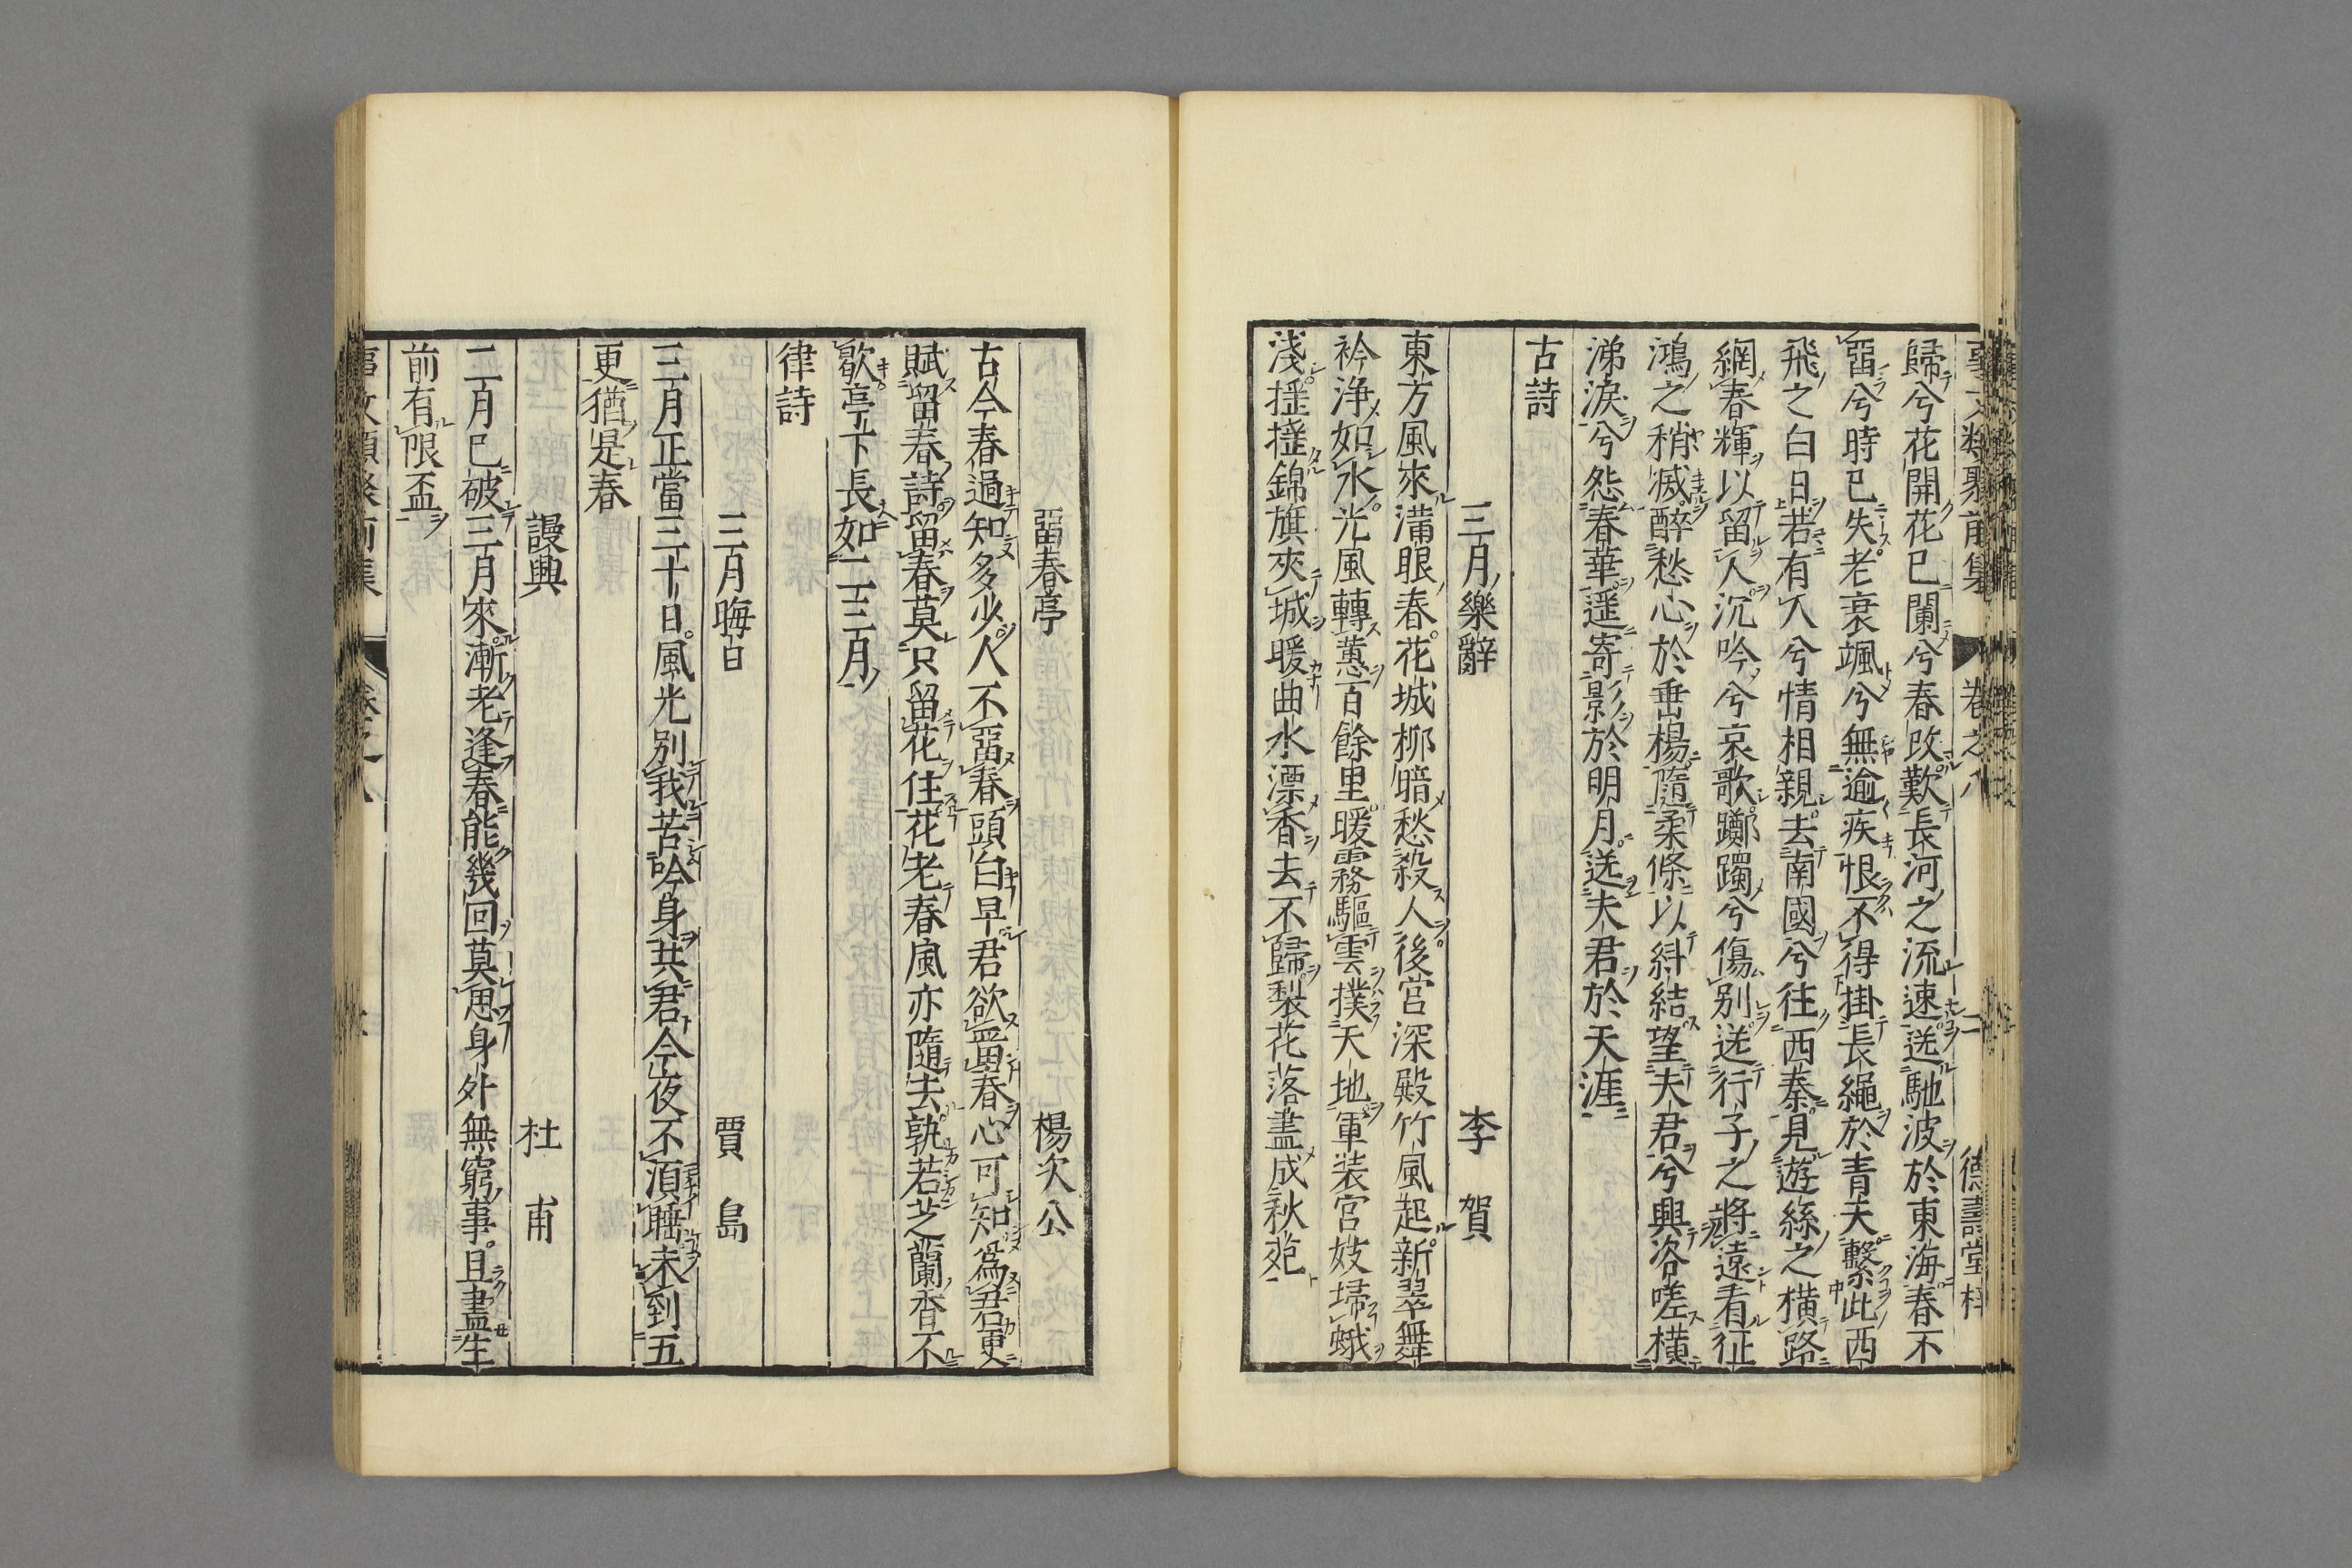 事文類聚前集 卷之八 二 德壽堂梓
歸兮花開花已闌兮春改歎長河之流速送馳波於東海春不
畱兮時已失老衰颯兮無逾疾恨不得掛長繩於青天繫此西
飛之白日若有人兮情相親去南國兮往西秦見遊絲之橫路
網春輝以留人沉吟兮哀歌躑躅兮傷別送行子之將遠看征
鴻之稍滅醉愁心於垂楊隨柔條以糾結望夫君兮興咨嗟橫
涕淚兮怨春華遥寄影於明月送夫君於天涯
古詩
三月樂辭 李賀
東方風來滿眼春花城柳暗愁殺人後宫深殿竹風起新翠舞
衿浄如水光風轉蕙百餘里暖霧驅雲撲天地軍装宫妓埽蛾
淺揺揺錦旗夾城暖曲水漂香去不歸梨花落盡成秋苑
畱春亭 楊次公
古今春過知多少人不畱春頭白早君欲畱春心可知爲君更
賦留春詩留春莫只留花住花老春風亦隨去孰若芝蘭香不
歇亭下長如二三月
律詩
三月晦日 賈島
三月正當三十日風光別我苦吟身共君今夜不湏睡未到五
更猶是春
謾興 杜甫
二月已破三月來漸老逢春能幾回莫思身外無窮事且盡生
前有限盃
事文類聚前集 卷之八